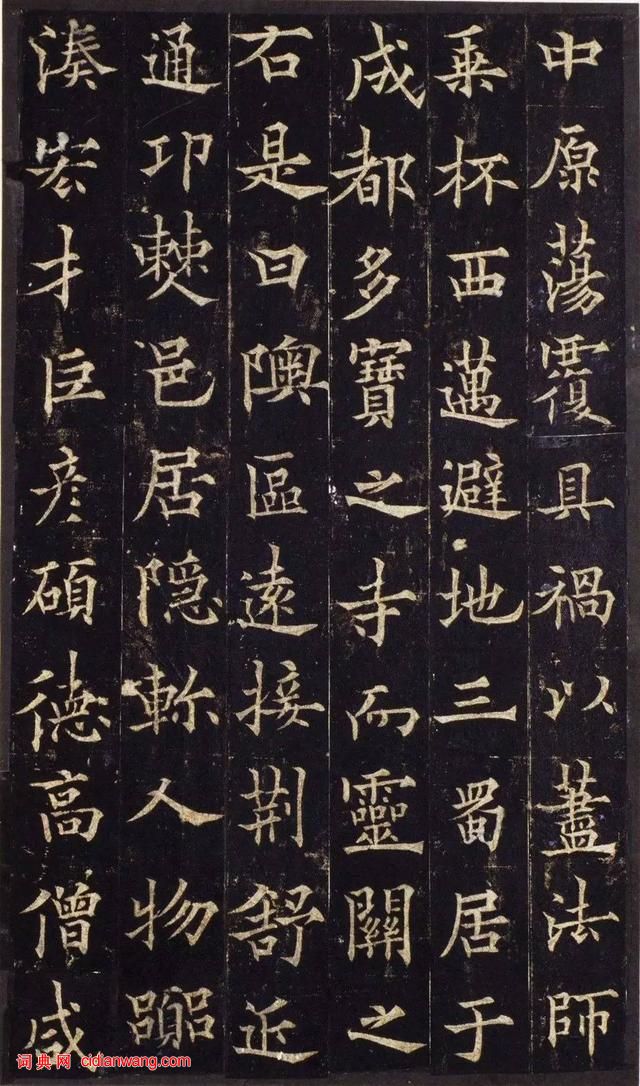 中原蕩覆具禍以藎法師
乗杯西邁避地三蜀居于
成都多寶之寺而靈關之
右是曰隩區遠接荊舒近
通邛僰邑居隱軫人物嚻
湊宏才巨彥碩德高僧咸
词典网 cidianwang.com